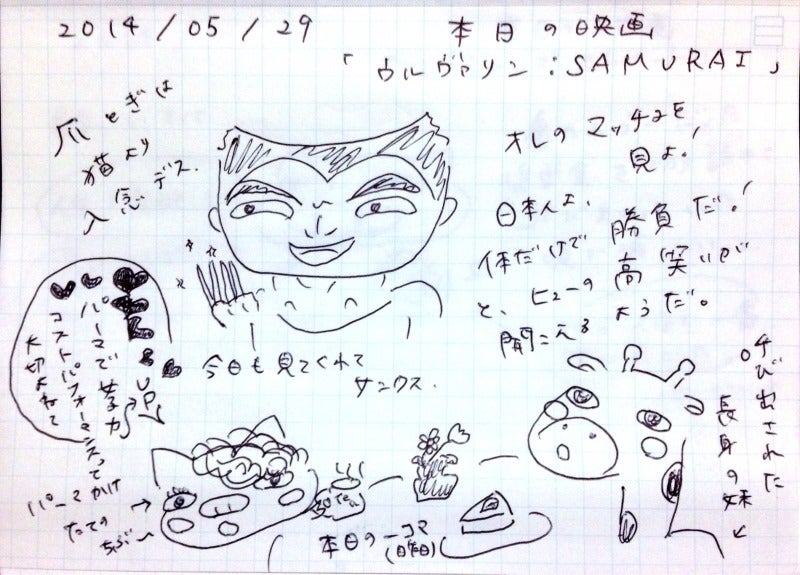 2014/05/29
本日の映画
「ウルヴァリン:SAMURAI」
爪とぎは
猫より
入念デス.
オレのマッチョを
見よ!
日本人よ、勝負だ!
体だけで
と、ヒューの高笑いが
聞こえるようだ。
今日も見てくれて
サンクス.
パーマで女子力
UP
コストパフォーマンスって
大切よねぇ
パーマかけ
たての
ちぶ〜
→
30 Tea
本日の一コマ
(日曜日)
呼び出された
長身の妹